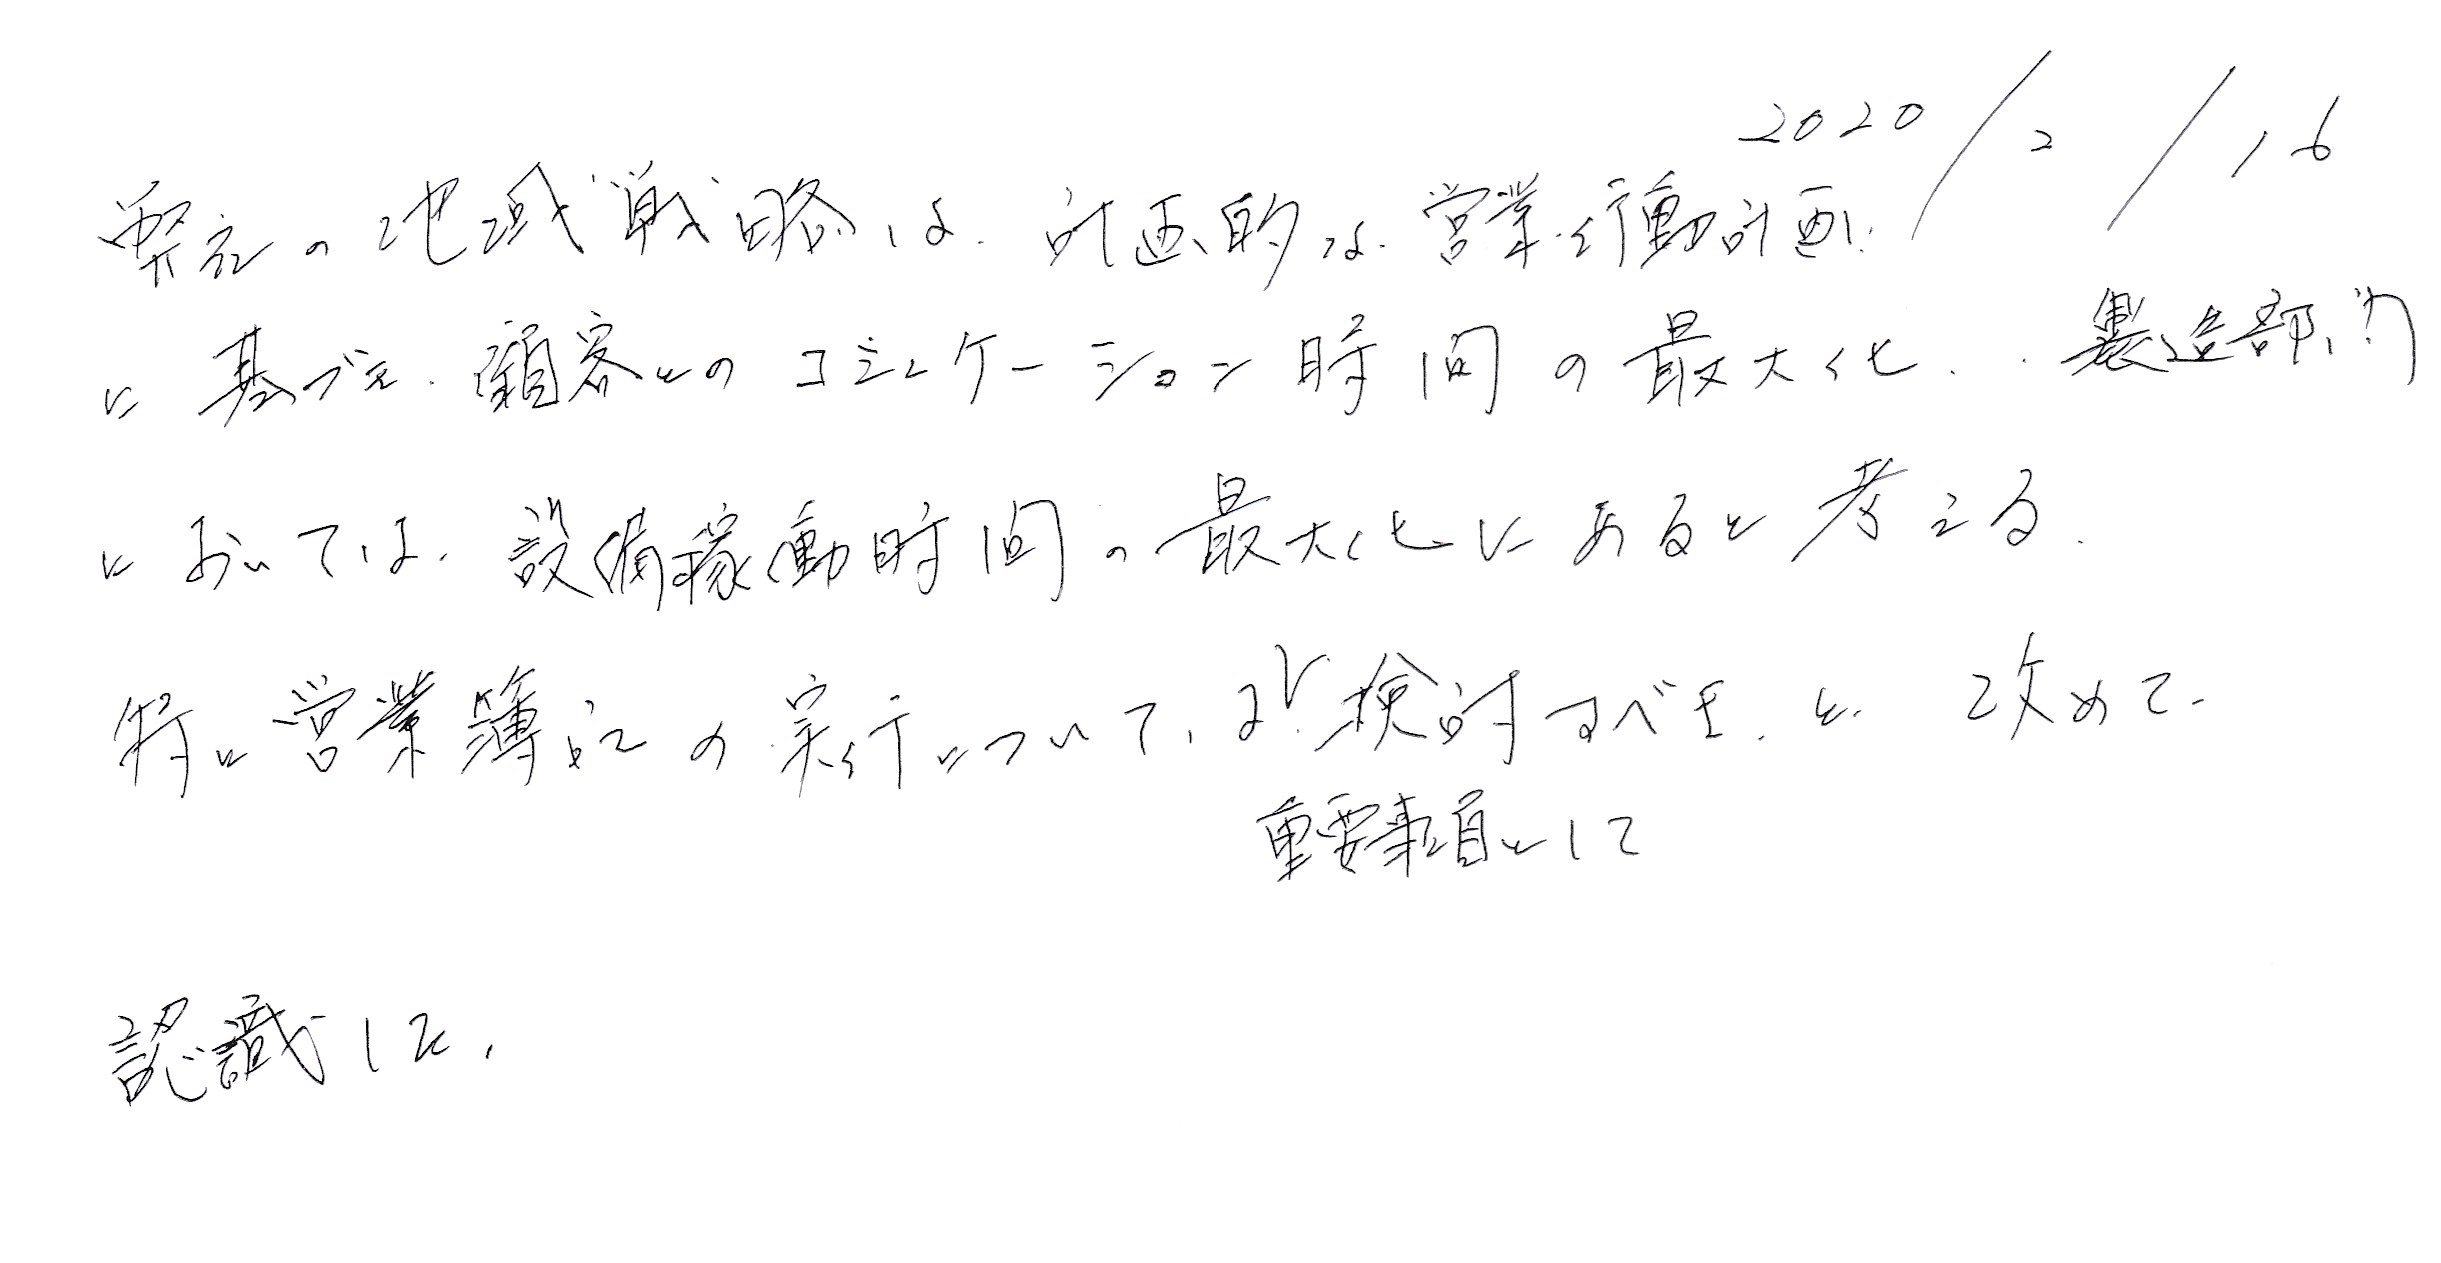 2020/2/16
弊社の地域戦略は、計画的な営業行動計画
に基づき、顧客とのコミュニケーション時間の最大化、製造部門
においては、設備稼動時間の最大化にあると考える。
特に営業簿記の実行について、検討すべき、と、改めて
重要事項として
認識した。